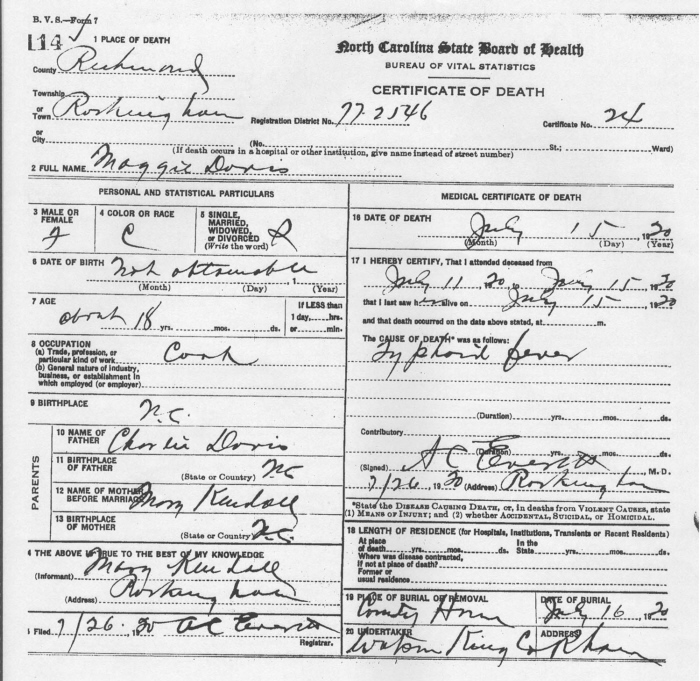 B. V. S.—Form 7
114
1 PLACE OF DEATH
North Carolina State Board of Health
BUREAU OF VITAL STATISTICS
CERTIFICATE OF DEATH
County Richmond
Township
or
Town Rockingham
Registration District No. 77-2546
Certificate No. 24
or
City (No. St.; Ward)
(If death occurs in a hospital or other institution, give name instead of street number)
2 FULL NAME Maggie Davis
PERSONAL AND STATISTICAL PARTICULARS
3 MALE OR FEMALE F
4 COLOR OR RACE C
5 SINGLE, MARRIED, WIDOWED, or DIVORCED (Write the word) S
6 DATE OF BIRTH Not obtainable , 1
(Month) (Day) (Year)
7 AGE about 18 yrs. mos. ds.
If LESS than
1 day, hrs.
or min.
8 OCCUPATION
(a) Trade, profession, or
particular kind of work Cook
(b) General nature of industry,
business, or establishment in
which employed (or employer)
9 BIRTHPLACE N.C.
PARENTS
10 NAME OF FATHER Charlie Davis
11 BIRTHPLACE OF FATHER (State or Country) NC
12 NAME OF MOTHER BEFORE MARRIAGE Mary Kendall
13 BIRTHPLACE OF MOTHER (State or Country) N.C.
4 THE ABOVE IS TRUE TO THE BEST OF MY KNOWLEDGE
(Informant) Mary Kendall
(Address) Rockingham
Filed 7/26 , 1920 A C Everett
Registrar.
MEDICAL CERTIFICATE OF DEATH
16 DATE OF DEATH July 15 , 1920
(Month) (Day) (Year)
17 I HEREBY CERTIFY, That I attended deceased from
July 11 1920 to July 15 , 1920
that I last saw h alive on July 15 , 1920
and that death occurred on the date above stated, at m.
The CAUSE OF DEATH* was as follows:
Typhoid fever
(Duration) yrs. mos. ds.
Contributory
(Duration) yrs. mos. ds.
(Signed) A C Everett , M. D.
7/26 , 1920 (Address) Rockingham
*State the DISEASE CAUSING DEATH, or, in deaths from VIOLENT CAUSES, state
(1) MEANS OF INJURY; and (2) whether ACCIDENTAL, SUICIDAL, or HOMICIDAL.
18 LENGTH OF RESIDENCE (for Hospitals, Institutions, Transients or Recent Residents)
At place of death yrs. mos. ds. In the State yrs. mos. ds.
Where was disease contracted,
If not at place of death?
Former or
usual residence
19 PLACE OF BURIAL OR REMOVAL County Home
DATE OF BURIAL July 16 , 1920
20 UNDERTAKER Watson King Co
ADDRESS Rham